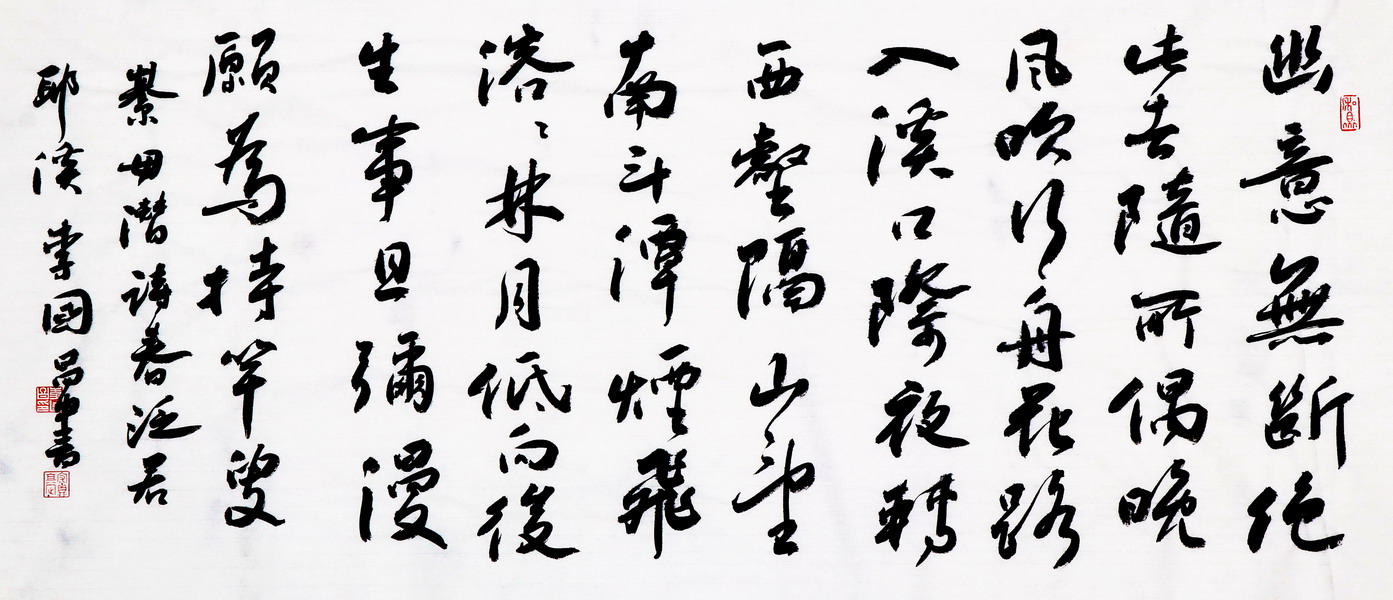 幽意無斷絕
此去隨所偶晚
風吹行舟花路
入溪口際夜轉
西壑隔山望
南斗潭煙飛
溶〻林月低向後
生事且彌漫
願為持竿叟
綦毋潛詩春泛若
耶溪 李國昌書